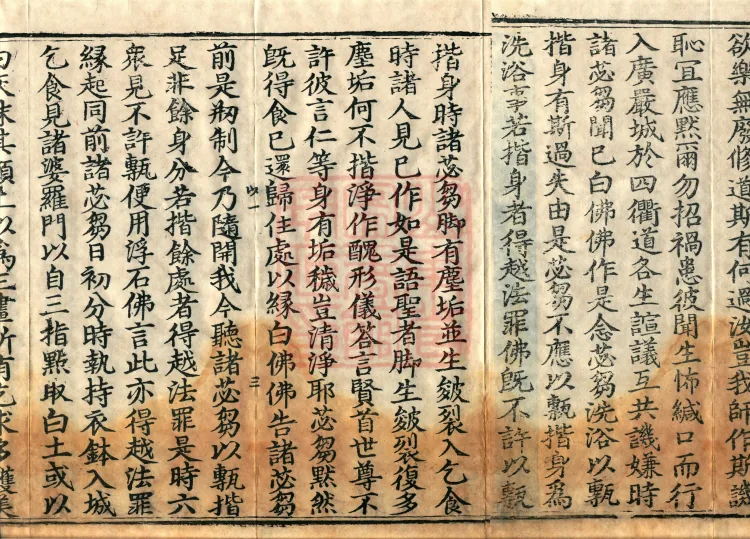 欲樂無廢修道斯有何過汝豈我師作斯譏
恥宜應默爾勿招禍患彼聞生怖緘口而行
入廣嚴城於四衢道各生諠議互共譏嫌時
諸苾芻聞已白佛佛作是念苾芻洗浴以甎
揩身有斯過失由是苾芻不應以甎揩身爲
洗浴事若揩身者得越法罪佛旣不許以甎
揩身時諸苾芻脚有塵垢並生皴裂入乞食
時諸人見已作如是語聖者脚生皴裂復多
塵垢何不揩淨作醜形儀答言賢首世尊不
許彼言仁等身有垢穢豈清淨耶苾芻默然
旣得食已還歸住處以緣白佛佛告諸苾芻
前是剏制今乃隨開我今聽諸苾芻以甎揩
足非餘身分若揩餘處者得越法罪是時六
衆見不許甎便用浮石佛言此亦得越法罪
緣起同前諸苾芻日初分時執持衣鉢入城
乞食見諸婆羅門以自三指點取白土或以
白灰抹其額上以爲三畫所有乞求多獲美
三